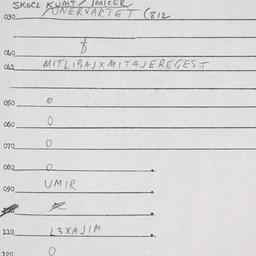 SKOCL KUMT/ IMICER
030 JUNERVARTET (812
060 $
042 MITLIBAJXMITAJEREGEST
050 0
060 0
070 0
080 0
090 UMIR
110 L3XAJIM
120 0